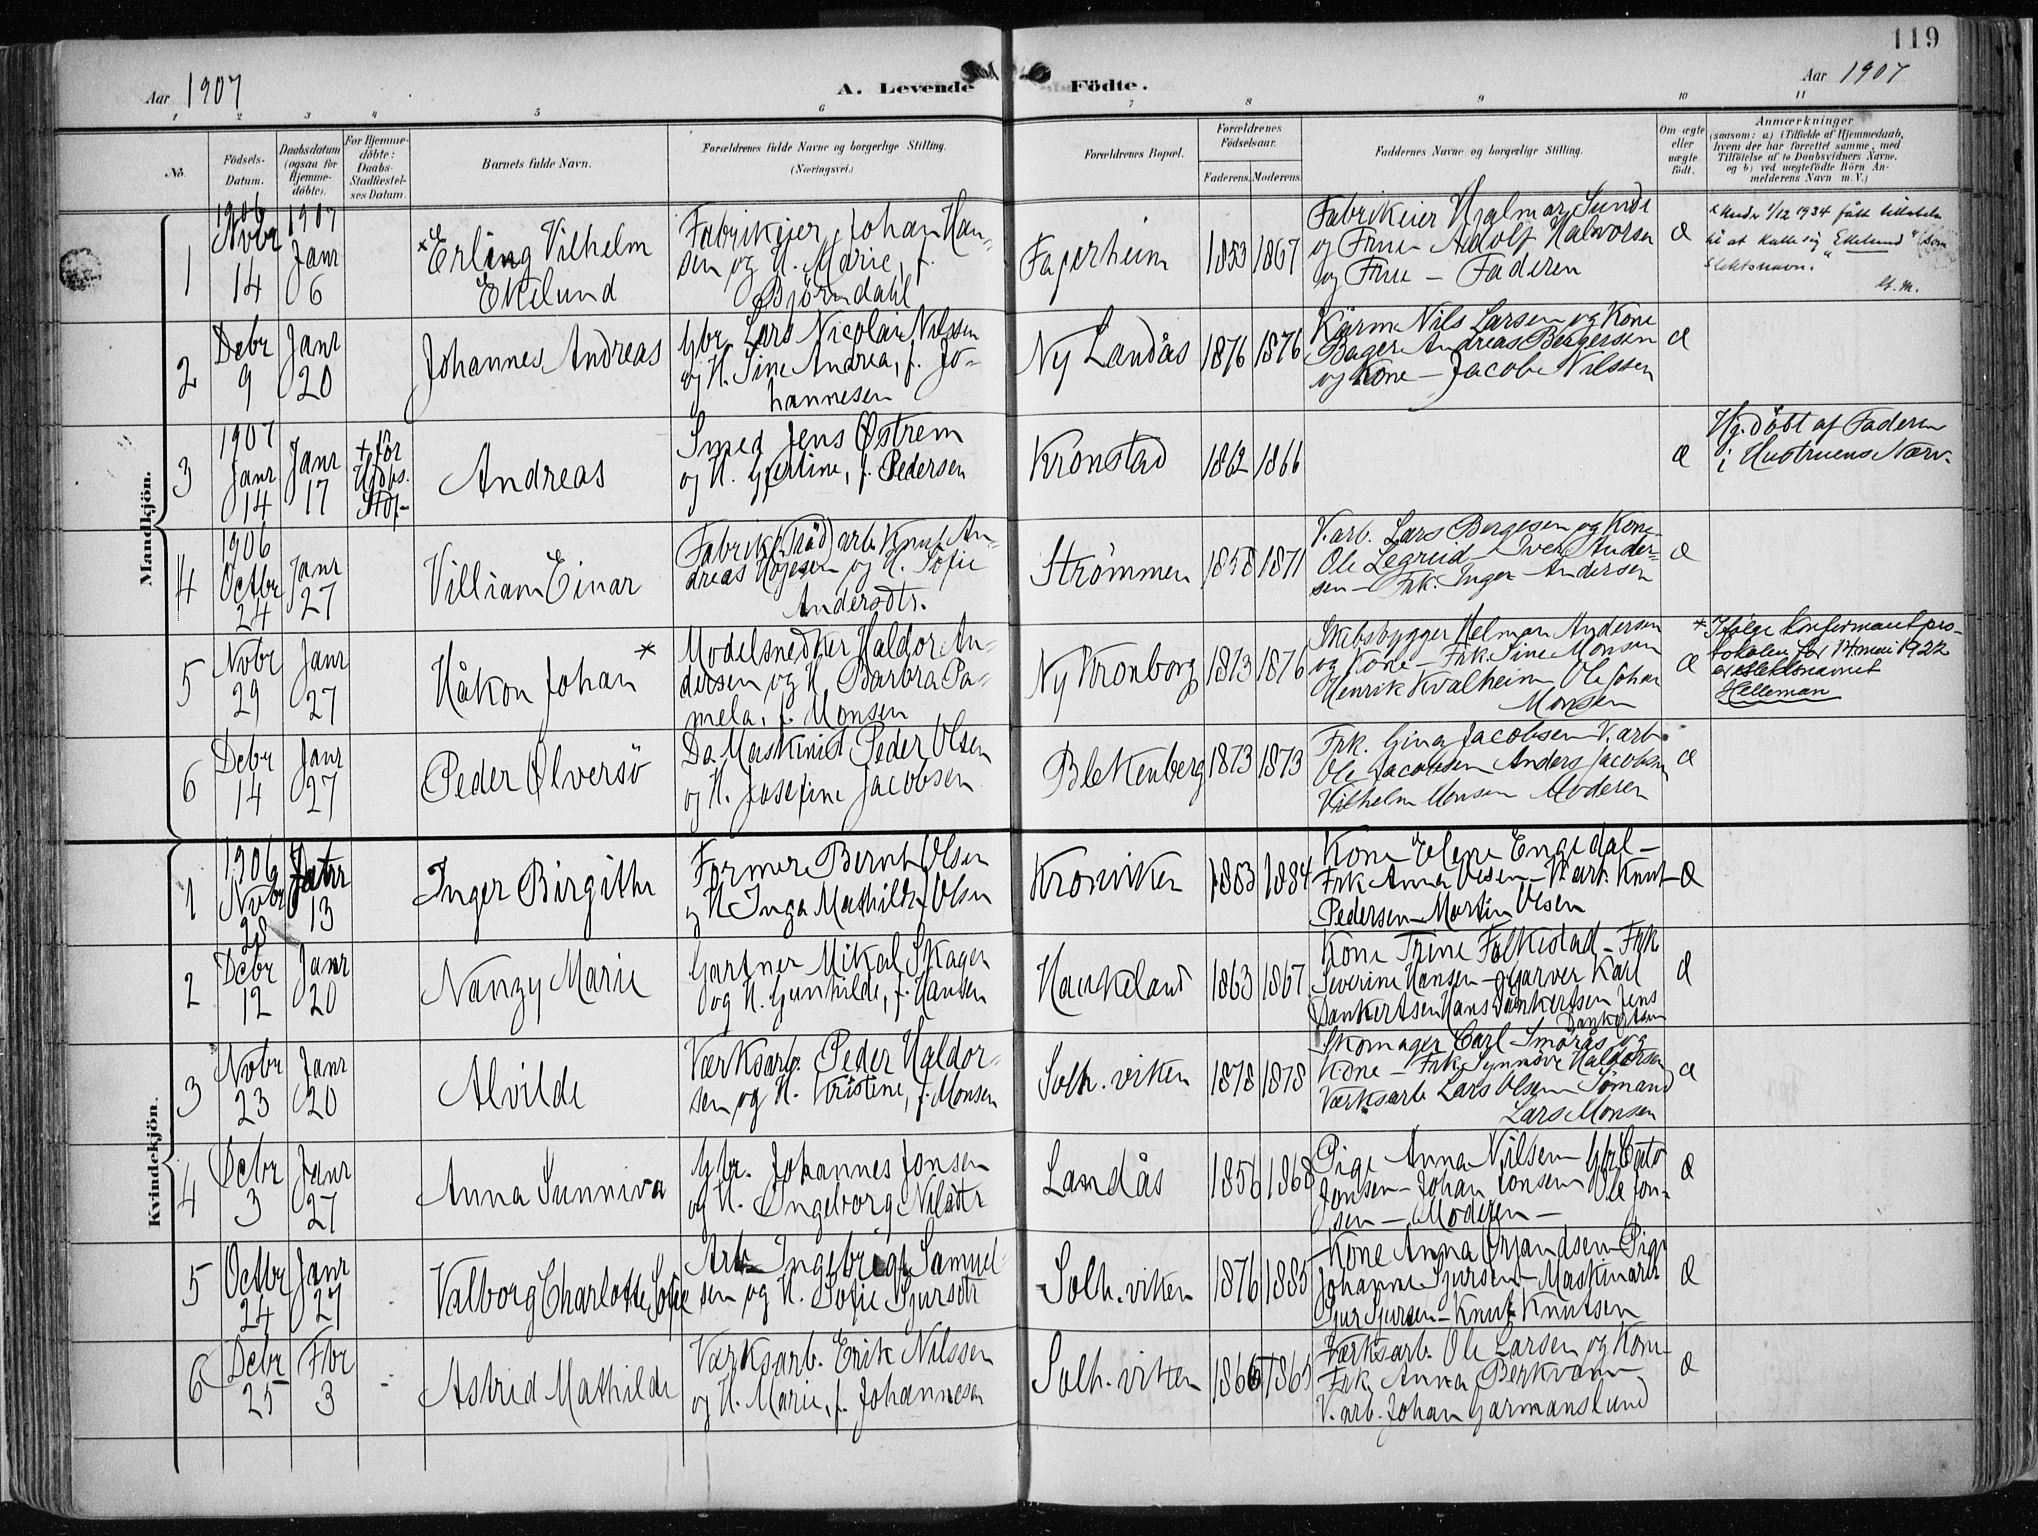 119
Aar 1907
A. Levende
Födte.
Aar 1907
1 2 3 4 5 6 7 8 9 10 11
No.
Födsels-
Datum.
Daabsdatum
(ogsaa for
Hjemme-
döbte).
For Hjemme-
döbte:
Daabs-
Stadfæstel-
ses Datum.
Barnets fulde Navn.
Forældrenes fulde Navne og borgerlige Stilling.
(Næringsvei.)
Forældrenes Bopæl.
Forældrenes
Födselsaar.
Faderens.
Moderens.
Faddernes Navne og borgerlige Stilling.
Om ægte
eller
uægte
födt.
Anmærkninger
(saasom: a) i Tilfælde af Hjemmedaab,
hvem der har forrettet samme, med
Tilföielse af to Daabsvidners Navne,
og b) ved uægtefödte Börn An-
melderens Navn m. V.)
Mandkjön.
1
1906
Novbr
14
1907
Janr
6
*Erling Vilhelm
Ekelund
Fabrikeier Johan Han-
sen og H. Marie, f.
Björndahl
Fagerheim
1853
1867
Fabrikeier Hjalmar Sunde
og Frue Adolf Halvorsen
og Frue – Faderen
Æ
x Under 1/12 1934 fått tillatelse
til at kalle sig "Ekelund" (som
slektsnavn.
2
Debr
9
Janr
20
Johannes Andreas
Gbr. Lars Nicolai Nilssen
og H. Sine Andrea, f. Jo-
hannesen
Ny Landås
1876
1876
Nils Larsen og Kone
Bager Andreas Bergersen
og Kone – Jacob Nilssen
Æ
3
1907
Janr
14
Janr
17
+ för
Hjdbs.
Stdf-
Andreas
Smed Jens Østrem
og H. Gjertine, f. Pedersen
Kronstad
1862
1866
Æ
Hj.döbt af Faderen
i Hustruens Nærv.
4
1906
Octbr
24
Janr
27
Villiam Einar
Fabrik(Tråd)arb. Knut An-
dreas Höjesen og H. Sofie
Andersdtr.
Strømmen
1858
1871
V.arb. Lars Borgesen og Kone
Ole Legreid – Iver Ander-
sen – Frk. Inger Andersen
Æ
5
Novbr
29
Janr
27
Håkon Johan *
Modelsnedker Haldor An-
dersen og H. Barbra Pa-
mela, f. Monsen
Ny Kronborg
1873
1876
Skibsbygger Helman Andersen
og Kone – Frk. Sine Monsen
Henrik Kvalheim Ole Johan
Monsen
Æ
* Ifølge konfirmantpro-
tokolen for 14 mai 1922
er slektsnavnet
Helleman
6
Debr
14
Janr
27
Peder Ølversö
Da. Maskinist Peder Olsen
og H. Josefine Jacobsen
Blekenberg
1873
1873
Frk. Gina Jacobsen V.arb.
Ole Jacobsen Anders Jacobsen
Vilhelm Monsen Moderen
Æ
Kvindekjön.
1
1906
Novbr
28
Janr
13
Inger Birgithe
Former Bernt Olsen
og H Inga Mathilde Olsen
Kroniviken
1863
1884
Kone Elene Engedal –
Frk Anna Olsen – V.arb. Knut
Pedersen – Martin Olsen
Æ
2
Debr
12
Janr
20
Nanzy Marie
Gartner Mikal Skagen
og H. Gunhilde, f. Hansen
Haukeland
1863
1867
Kone Trine Folkestad – Frk
Severine Hansen – Garver Karl
Dankertsen Hans Dankertsen Jens
Dankertsen
Æ
3
Novbr
23
Janr
20
Alvilde
Værksarb. Peder Haldor-
sen og H. Kristine, f. Monsen
Solh.viken
1878
1878
Skomager Carl Smørås og
Kone – Frk Synnöve Haldorsen
Værksarb Lars Olsen Sømand
Lars Monsen
Æ
4
Decbr
3
Janr
27
Anna Sunniva
Gbr. Johannes Jonsen
og H. Ingeborg Nilsdtr
Landås
1856
1868
Pige Anna Nilsen – Gbr
Jonsen – Johan Jonsen Ole Jon-
sen – Moderen –
Æ
5
Octbr
24
Janr
27
Valborg Charlotte Sofie
Arb Ingebrigt Samuel-
sen og H. Sofie Sjursdtr
Solh.viken
1876
1885
Kone Anna Ørjandsen Pige
Johanne Sjursen – Maskinarb
Sjur Sjursen – Knut Knutsen
Æ
6
Debr
25
Fbr
3
Astrid Mathilde
Værksarb. Erik Nilssen
og H. Marie, f. Johannesen
Solh.viken
1866
1865
Værksarb. Ole Larsen og Kone
Frk. Anna Berkvam
V.arb. Johan Garmanslund
Æ